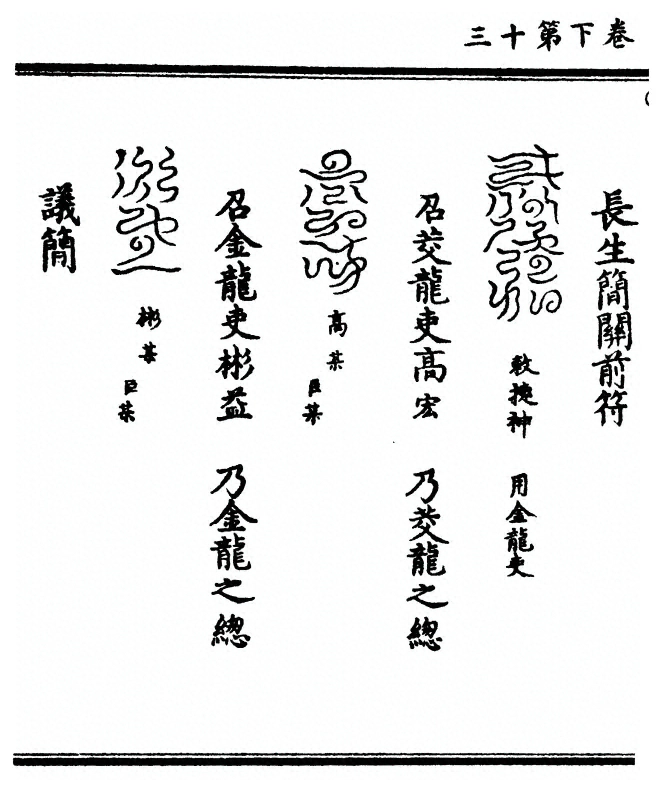 三十第下卷
長生簡關前符
敕㨗神 用金龍吏
召茭龍吏高宏 乃茭龍之總
高某
臣某
召金龍吏彬益 乃金龍之總
彬某
臣某
議簡